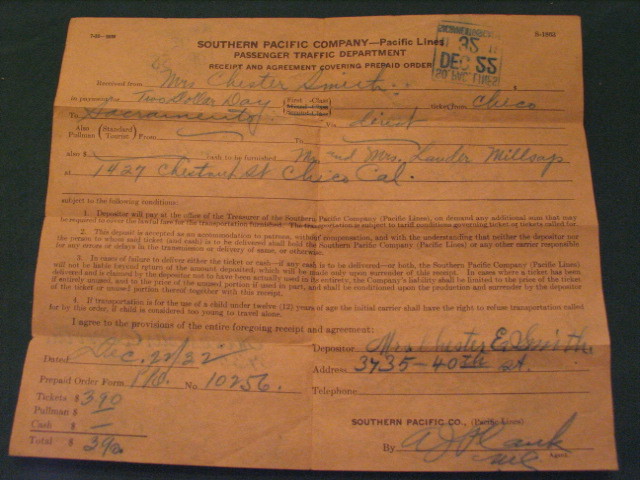 S-1861
SOUTHERN PACIFIC COMPANY—Pacific Lines
PASSENGER TRAFFIC DEPARTMENT
RECEIPT AND AGREEMENT COVERING PREPAID ORDER
DEC 22
Received from Mrs Chester Smith
for passage Two Dollar Day First-Class ticket from Chico
To Sacramento Via direct
Also Pullman (Standard Tourist) From To
also $ cash to be furnished Mr. and Mrs. Lauder Millsap
at 1427 Chestnut St Chico Cal.
subject to the following conditions:
1. Depositor will pay at the office of the Treasurer of the Southern Pacific Company (Pacific Lines), on demand any additional sum that may
be required to cover the lawful fare for the transportation furnished. The transportation is subject to tariff conditions governing ticket or tickets called for.
2. This deposit is accepted as an accommodation to patrons, without compensation, and with the understanding that neither the depositor nor
the person to whom said ticket (and cash) is to be delivered shall hold the Southern Pacific Company (Pacific Lines) or any other carrier responsible
for any errors or delays in the transmission or delivery of same, or otherwise.
3. In cases of failure to deliver either the ticket or cash—if any cash is to be delivered—or both, the Southern Pacific Company (Pacific Lines)
will not be liable beyond return of the amount deposited; which will be made only upon surrender of this receipt. In cases where a ticket has been
delivered and is claimed by the depositor not to have been actually used in its entirety, the Company's liability shall be limited to the price of the ticket
if entirely unused, and to the price of the unused portion if used in part, and shall be conditioned upon the production and surrender by the depositor
of the ticket or unused portion thereof together with this receipt.
4. If transportation is for the use of a child under twelve (12) years of age the initial carrier shall have the right to refuse transportation called
for by this order, if child is considered too young to travel alone.
I agree to the provisions of the entire foregoing receipt and agreement:
Dated Dec. 22/32
Depositor Mrs Chester E Smith
Address 3735-40th St.
Prepaid Order Form No. 10256.
Telephone
Tickets $ 3.90
Pullman $
Cash $
Total $ 3.90
SOUTHERN PACIFIC CO., (Pacific Lines)
By
Agent.